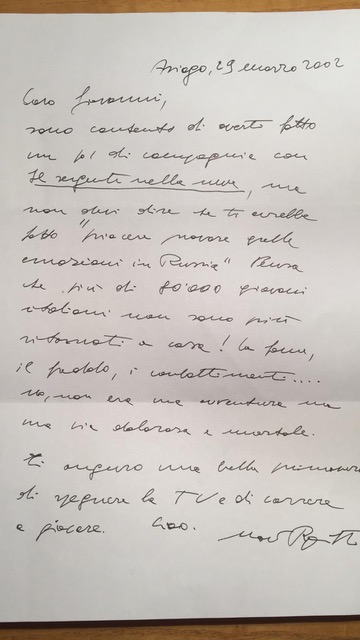 Asiago, 29 marzo 2002
Caro Giovanni,
sono contento di averti fatto
un po' di compagnia con
Il sergente nella neve, ma
non devi dire che ti avrebbe
fatto "piacere provare quelle
emozioni in Russia" Pensa
che più di 80'000 giovani
italiani non sono più
ritornati a casa! La fame,
il freddo, i combattimenti....
No, non era una avventura ma
una via dolorosa e mortale.
Ti auguro una bella primavera
di spegnere la TV e di correre
e giocare. Ciao.